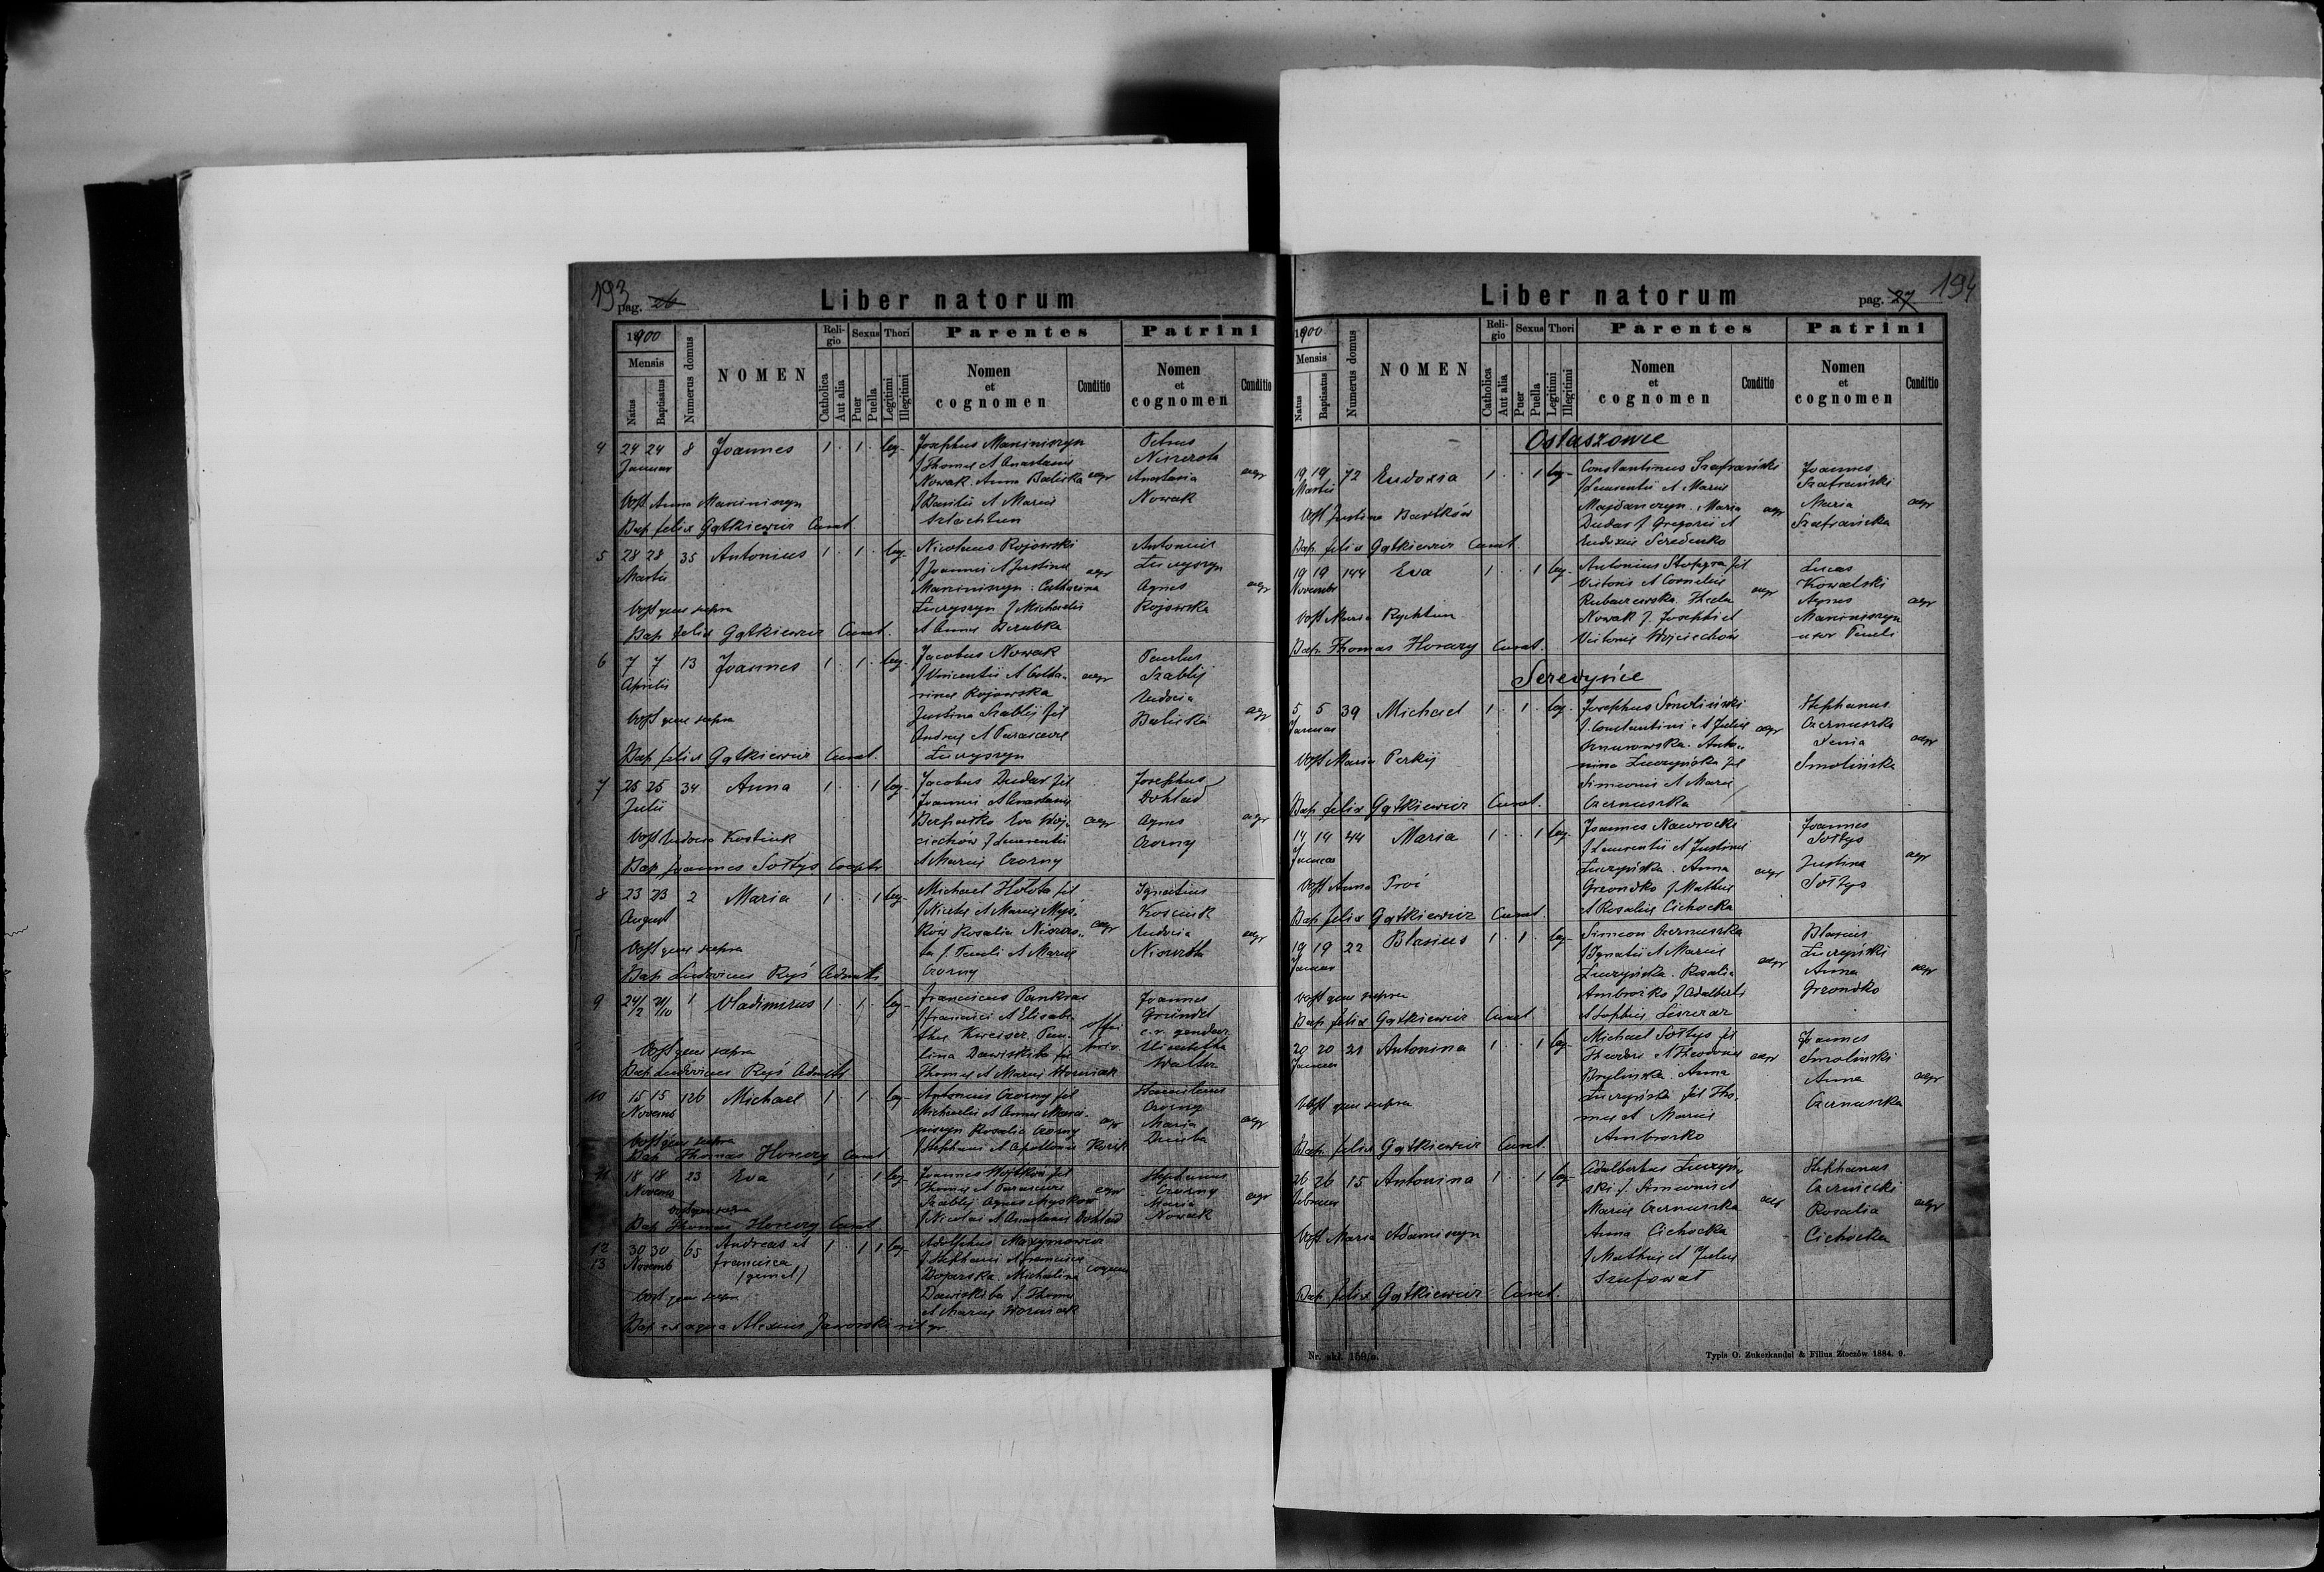 193
pag. 26
Liber natorum
1900
Mensis
Natus
Baptisatus
Numerus domus
NOMEN
Religio
Catholica
Aut alia
Sexus
Puer
Puella
Thori
Legitimi
Illegitimi
Parentes
Nomen et cognomen
Conditio
Patrini
Nomen et cognomen
Conditio
4 24 24 8 Joannes 1 1 leg.
Januar
Josephus Marciniszyn
Thomae et Anastasiae
Nowak. Anna Baliska agr
et Mariae
Petrus
Anastasia agr
Nowak
Obst Anna Marciniszyn
Bap. Felix Gątkiewicz Curat.
5 28 28 35 Antonius 1 1 leg.
Martii
Nicolaus Rojowski
f Joannis et Justinae agr
Marciniszyn. Catharina
Łuczyszyn f Michaelis
et Annae
Antonius
Łuczyszyn
Agnes agr
Rojowska
Obst quae supra
Bap. Felix Gątkiewicz Curat.
6 7 7 13 Joannes 1 1 leg.
Aprilis
Jacobus Nowak
f Vincentii et Catha- agr
rinae Rojowska
Justina Szablij fil
Andreae et Parascevae
Łuczyszyn
Paulus
Szablij
Eudocia agr
Baliska
Obst quae supra
Bap. Felix Gątkiewicz Curat.
7 25 25 34 Anna 1 1 leg.
Julii
Jacobus Dudar fil
Joannis et Anastasiae
Eva Woj- agr
ciechów f Laurentii
et Mariae Czorny
Josephus
Dohlad
Agnes agr
Czorny
Obst Eudocia Kostiuk
Bap. Joannes Sołtys Coop.
8 23 23 2 Maria 1 1 leg.
August
Michael Hołota fil
Rosalia agr
f. Pauli et Mariae
Czorny
Ignatius
Eudocia agr
Obst quae supra
Bap. Ludovicus Ryś Admti
9 24/2 21/10 1 Vladimirus 1 1 leg.
Franciscus Pankrac
f Francisci et Elisabe-
thae Kweiser. Pau-
lina Dawiskiba fil
Thomae et Mariae Worniak
Joannes
Gründel
c.r. gendar
Walter
Obst quae supra
Bap. Ludovicus Ryś Admti
10 15 15 126 Michael 1 1 leg.
Novemb
Antonius Czorny fil
Michaelis et Annae Marci-
niszyn Rosalia Czorny agr
f Stephani et Apolloniae
Czorny
Maria agr
Obst quae supra
Bap. Thomas Horacy Curat
11 18 18 23 Eva 1 1 leg.
Novemb
Joannes Wojtków fil
Thomae et Parascevae
Szablij Agnes agr
f Nicolai et Anastasiae Dohlad
Stephanus
Czorny
Maria agr
Nowak
Obst quae supra
Bap. Thomas Horacy Curat
12 13 30 30 65 Andreas et 1 1 1 leg.
Novemb Francisca
(gemel.)
Adolphus Maxymowicz
f Stephani et Franciscae
Bojarska. Michalina
Dawiskiba f. Thomae
et Mariae Worniak
Obst quae supra
Bap. ex aqua Alexius Jaworski rit gr
194
pag. 27
Liber natorum
1900
Mensis
Natus
Baptisatus
Numerus domus
NOMEN
Religio
Catholica
Aut alia
Sexus
Puer
Puella
Thori
Legitimi
Illegitimi
Parentes
Nomen et cognomen
Conditio
Patrini
Nomen et cognomen
Conditio
Ostaszowce
19 19 72 Eudoxia 1 1 leg.
Martii
Constantinus Szafrański
f Laurentii et Mariae
Majdanczyn. Maria agr
Dudar f Gregorii et
Eudoxiae Seredenko
Joannes
Szafrański
Maria agr
Szafrańska
Obst Justina Bartków
Bap. Felix Gątkiewicz Curat.
19 19 144 Eva 1 1 leg.
Novembr
Antonius fil
Victoris et Corneliae
Thecla agr
Nowak f. Josephi et
Victoriae Wojciechów
Lucas
Kowalski
Agnes agr
Marciniszyn
uxor Pauli
Obst Maria Rychtun
Bap. Thomas Horacy Curat.
Seredyńce
5 5 39 Michael 1 1 leg.
Januar
Josephus Smoliński
f. Constantini et Juliae agr
Anto-
nina Łuczyńska fil
Simeonis et Mariae
Czernuszka
Stephanus
Czernuszka
Xenia agr
Smolińska
Obst Maria Perkij
Bap. Felix Gątkiewicz Curat.
14 14 44 Maria 1 1 leg.
Januar
Joannes Nawrocki
f Laurentii et Justinae
Łuczyńska. Anna agr
Grzondko f Mathiae
et Rosaliae Cichocka
Joannes
Sołtys
Justina agr
Sołtys
Obst Anna
Bap. Felix Gątkiewicz Curat.
19 19 22 Blasius 1 1 leg.
Januar
Simeon Czernuszka
f Ignatii et Mariae
Łuczyńska. Rosalia agr
Ambrosko f Adalberti
et Sophiae
Blasius
Łuczyński
Anna agr
Grzondko
Obst quae supra
Bap. Felix Gątkiewicz Curat
20 20 21 Antonina 1 1 leg.
Januar
Michael Sołtys fil
Theodori et agr
Brylińska. Anna
Łuczyńska fil Tho-
mae et Mariae
Ambrosko
Joannes
Smoliński
Anna agr
Czernuszka
Obst quae supra
Bap. Felix Gątkiewicz Curat.
26 26 15 Antonina 1 1 leg.
Februar
Adalbertus Łuczyń-
ski f. Simeonis et
Mariae Czernuszka agr
Anna Cichocka
f Mathiae et Juliae
Szafował
Stephanus
Czerniecki
Rosalia agr
Cichocka
Obst Maria Adamiszyn
Bap. Felix Gątkiewicz Curat.
Nr. skł. 169/b.
Typis O. Zukerkandel & Filius Złoczów 1884. 9.